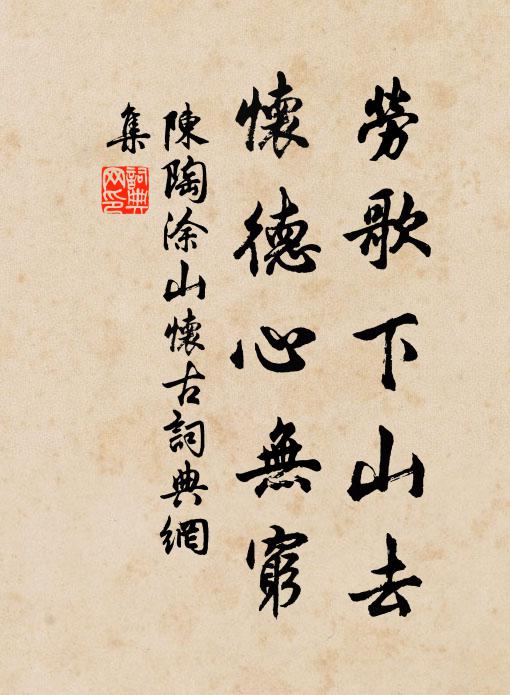 勞歌下山去
懷德心無窮
陳陶涂山懷古詞典網
集
詞典網印